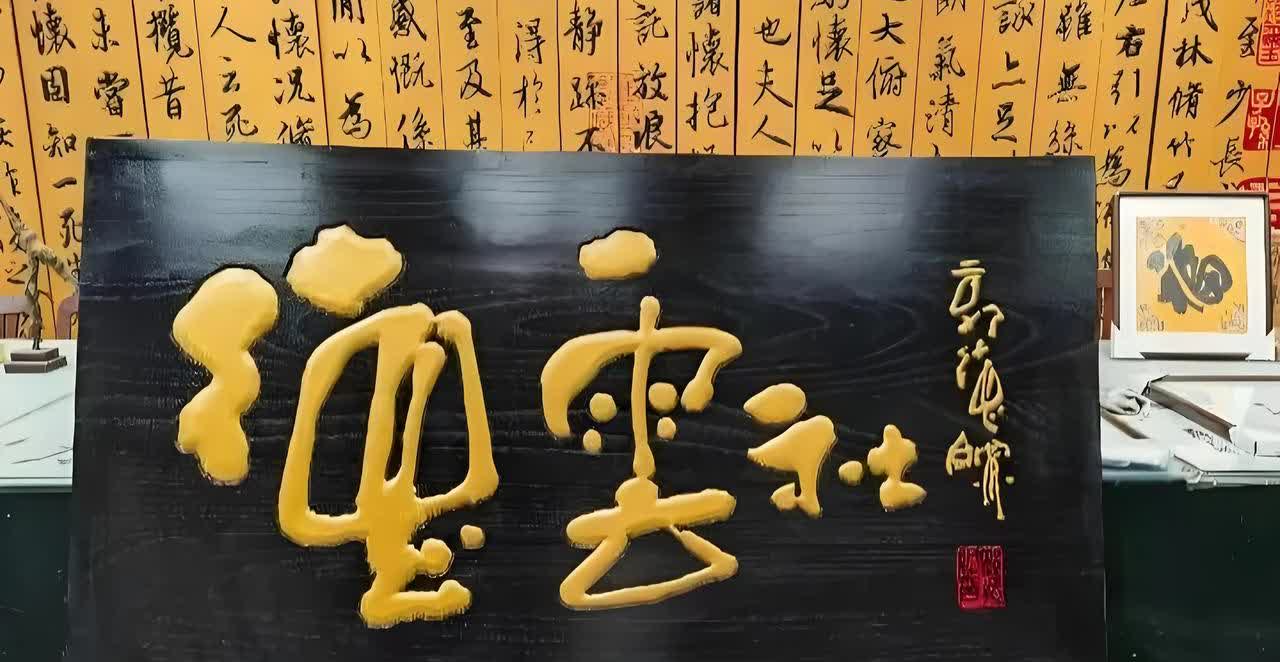 至少長
茂林脩竹
右引以為
雖無絲
詠亦足
氣清
大俯察
騁懷足以
也夫人
諸懷抱
託放浪
靜躁不
得於
至及其
感慨係
間以為
懷況脩
人云死
攬昔
未嘗
懷固知一死生
德雲社
福